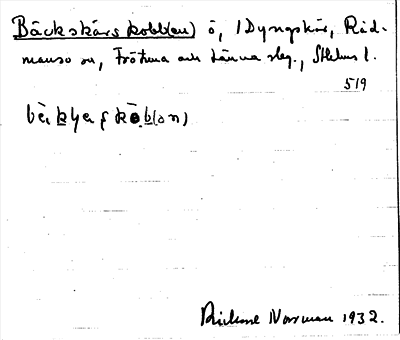 Bäckskärskobb(en) ö, 1 Dyngskär, Råd-
manso sn, Frötuna och Länna slg., Sthlms l.
519
Rickard Norrman 1932.